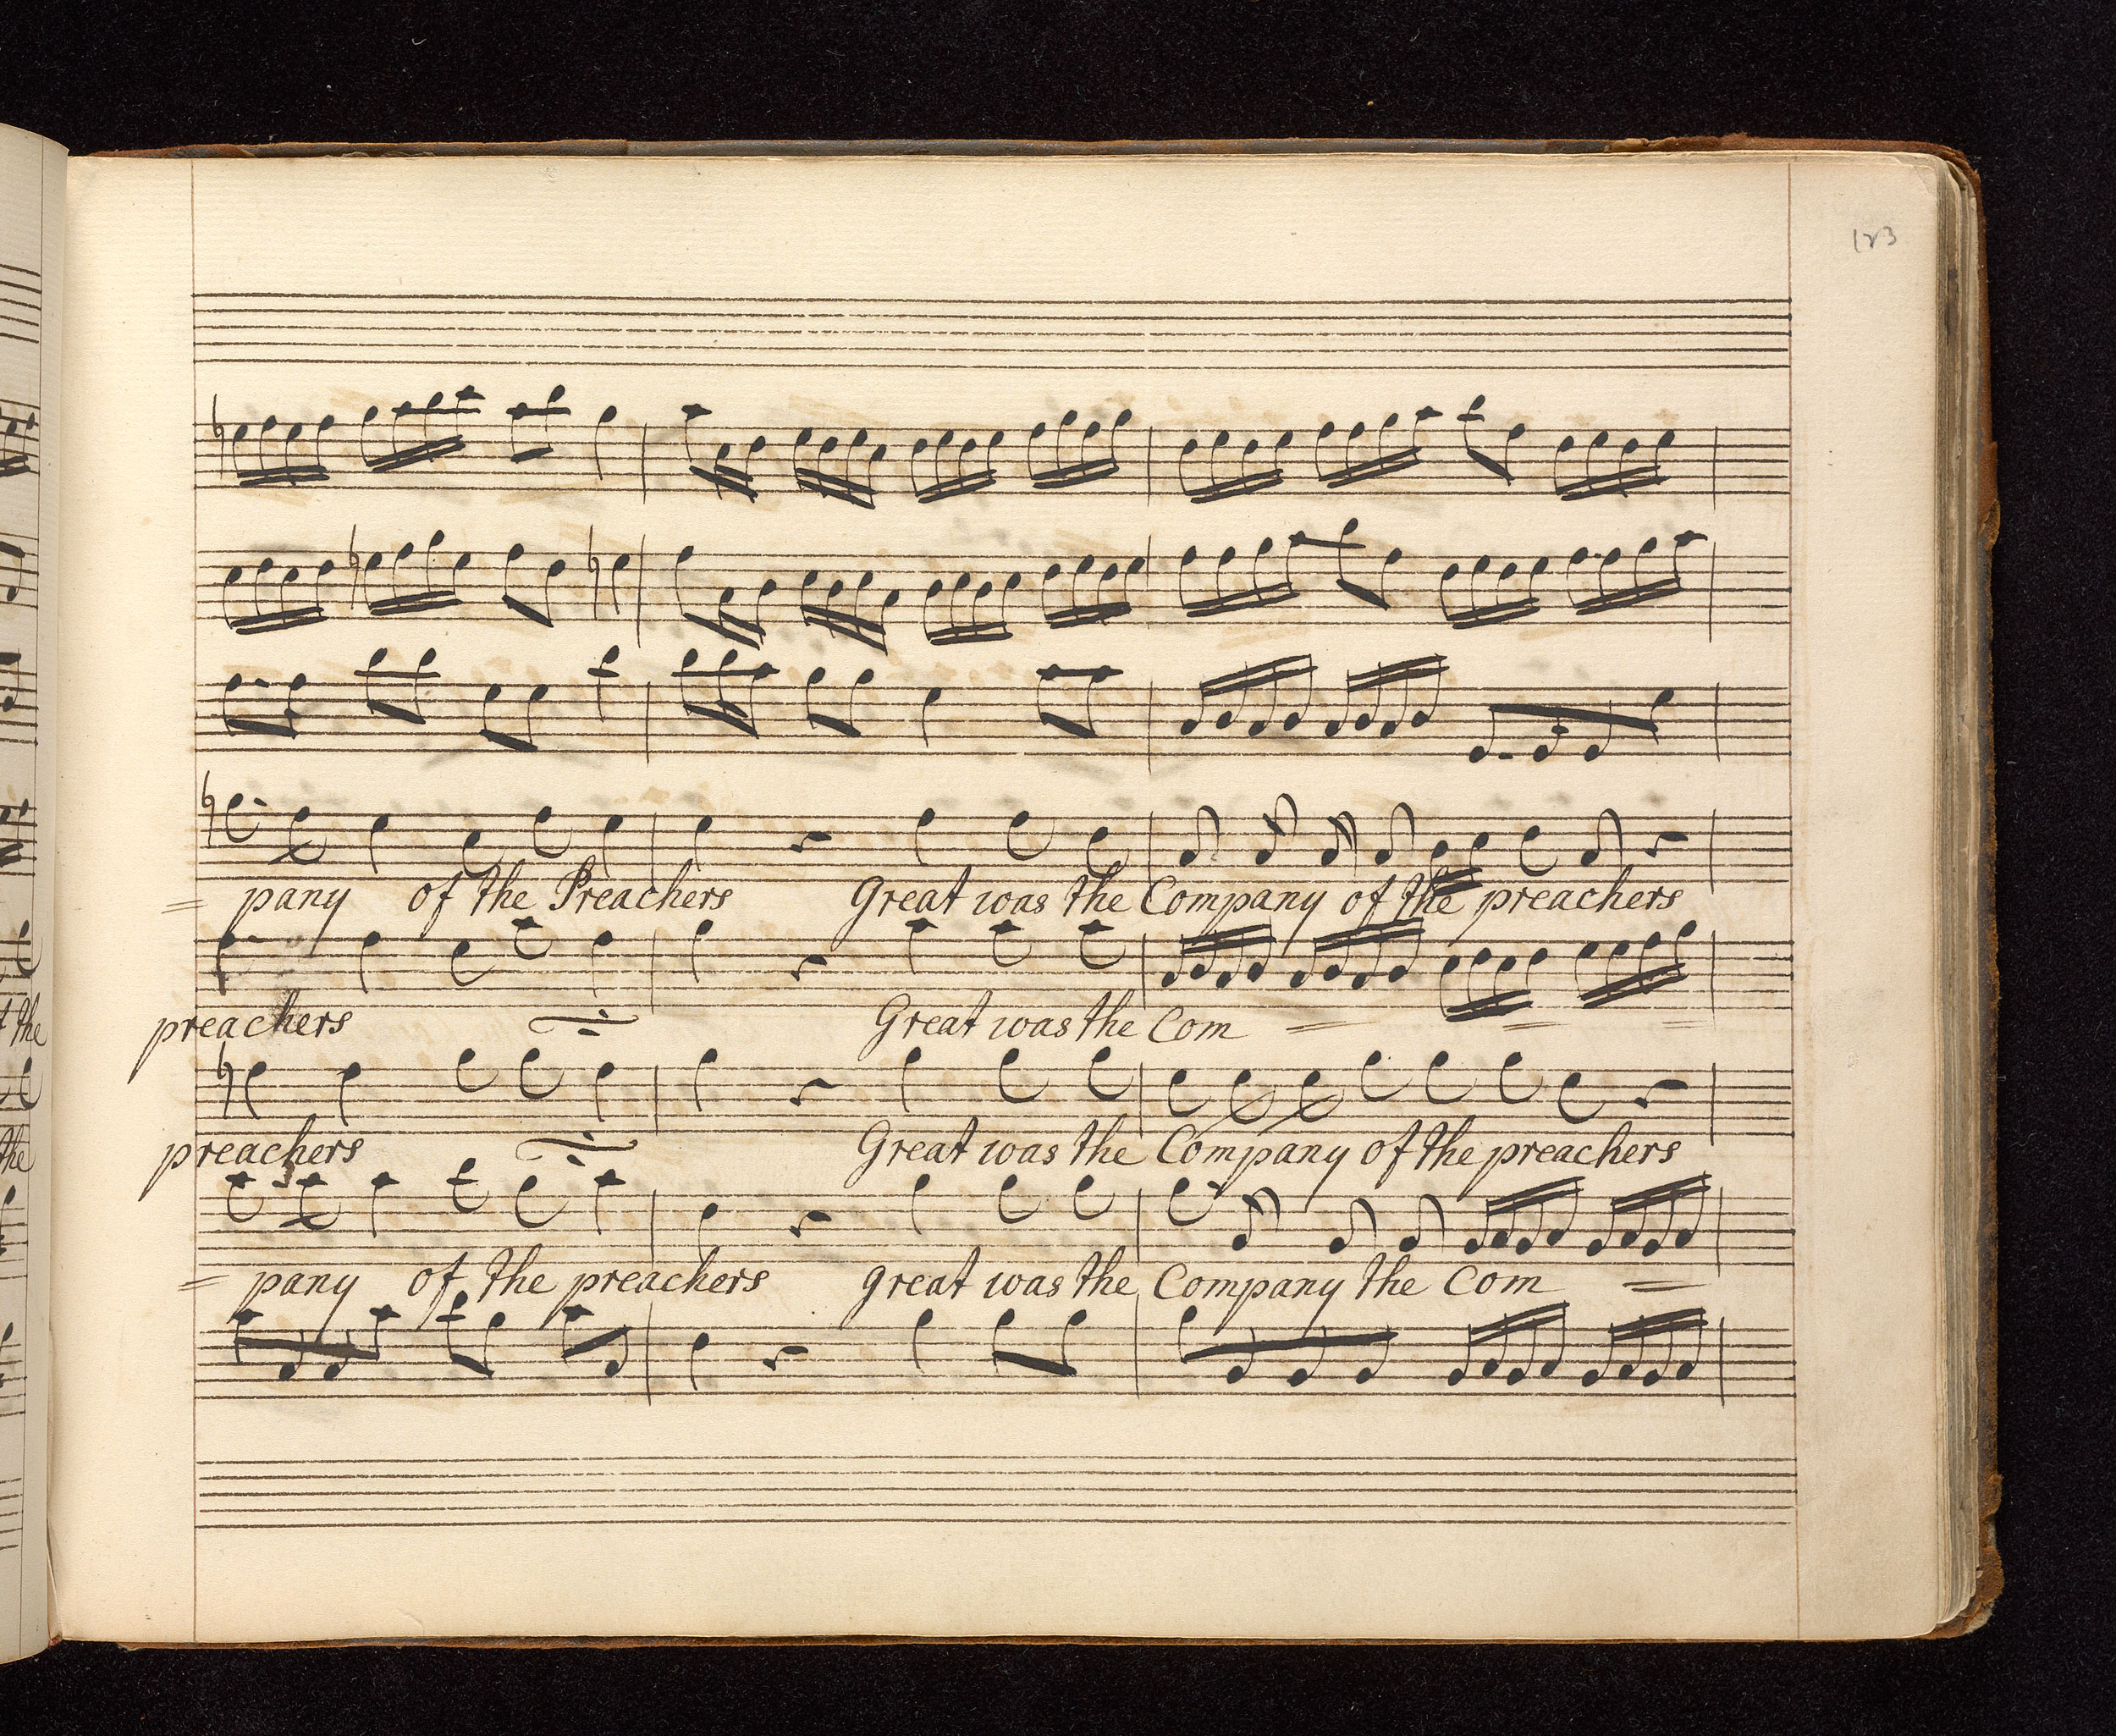 123
= pany of the Preachers Great was the Company of the preachers
preachers Great was the Com = = =
preachers Great was the Company of the preachers
= pany of the preachers great was the Company the Com =
t the
the